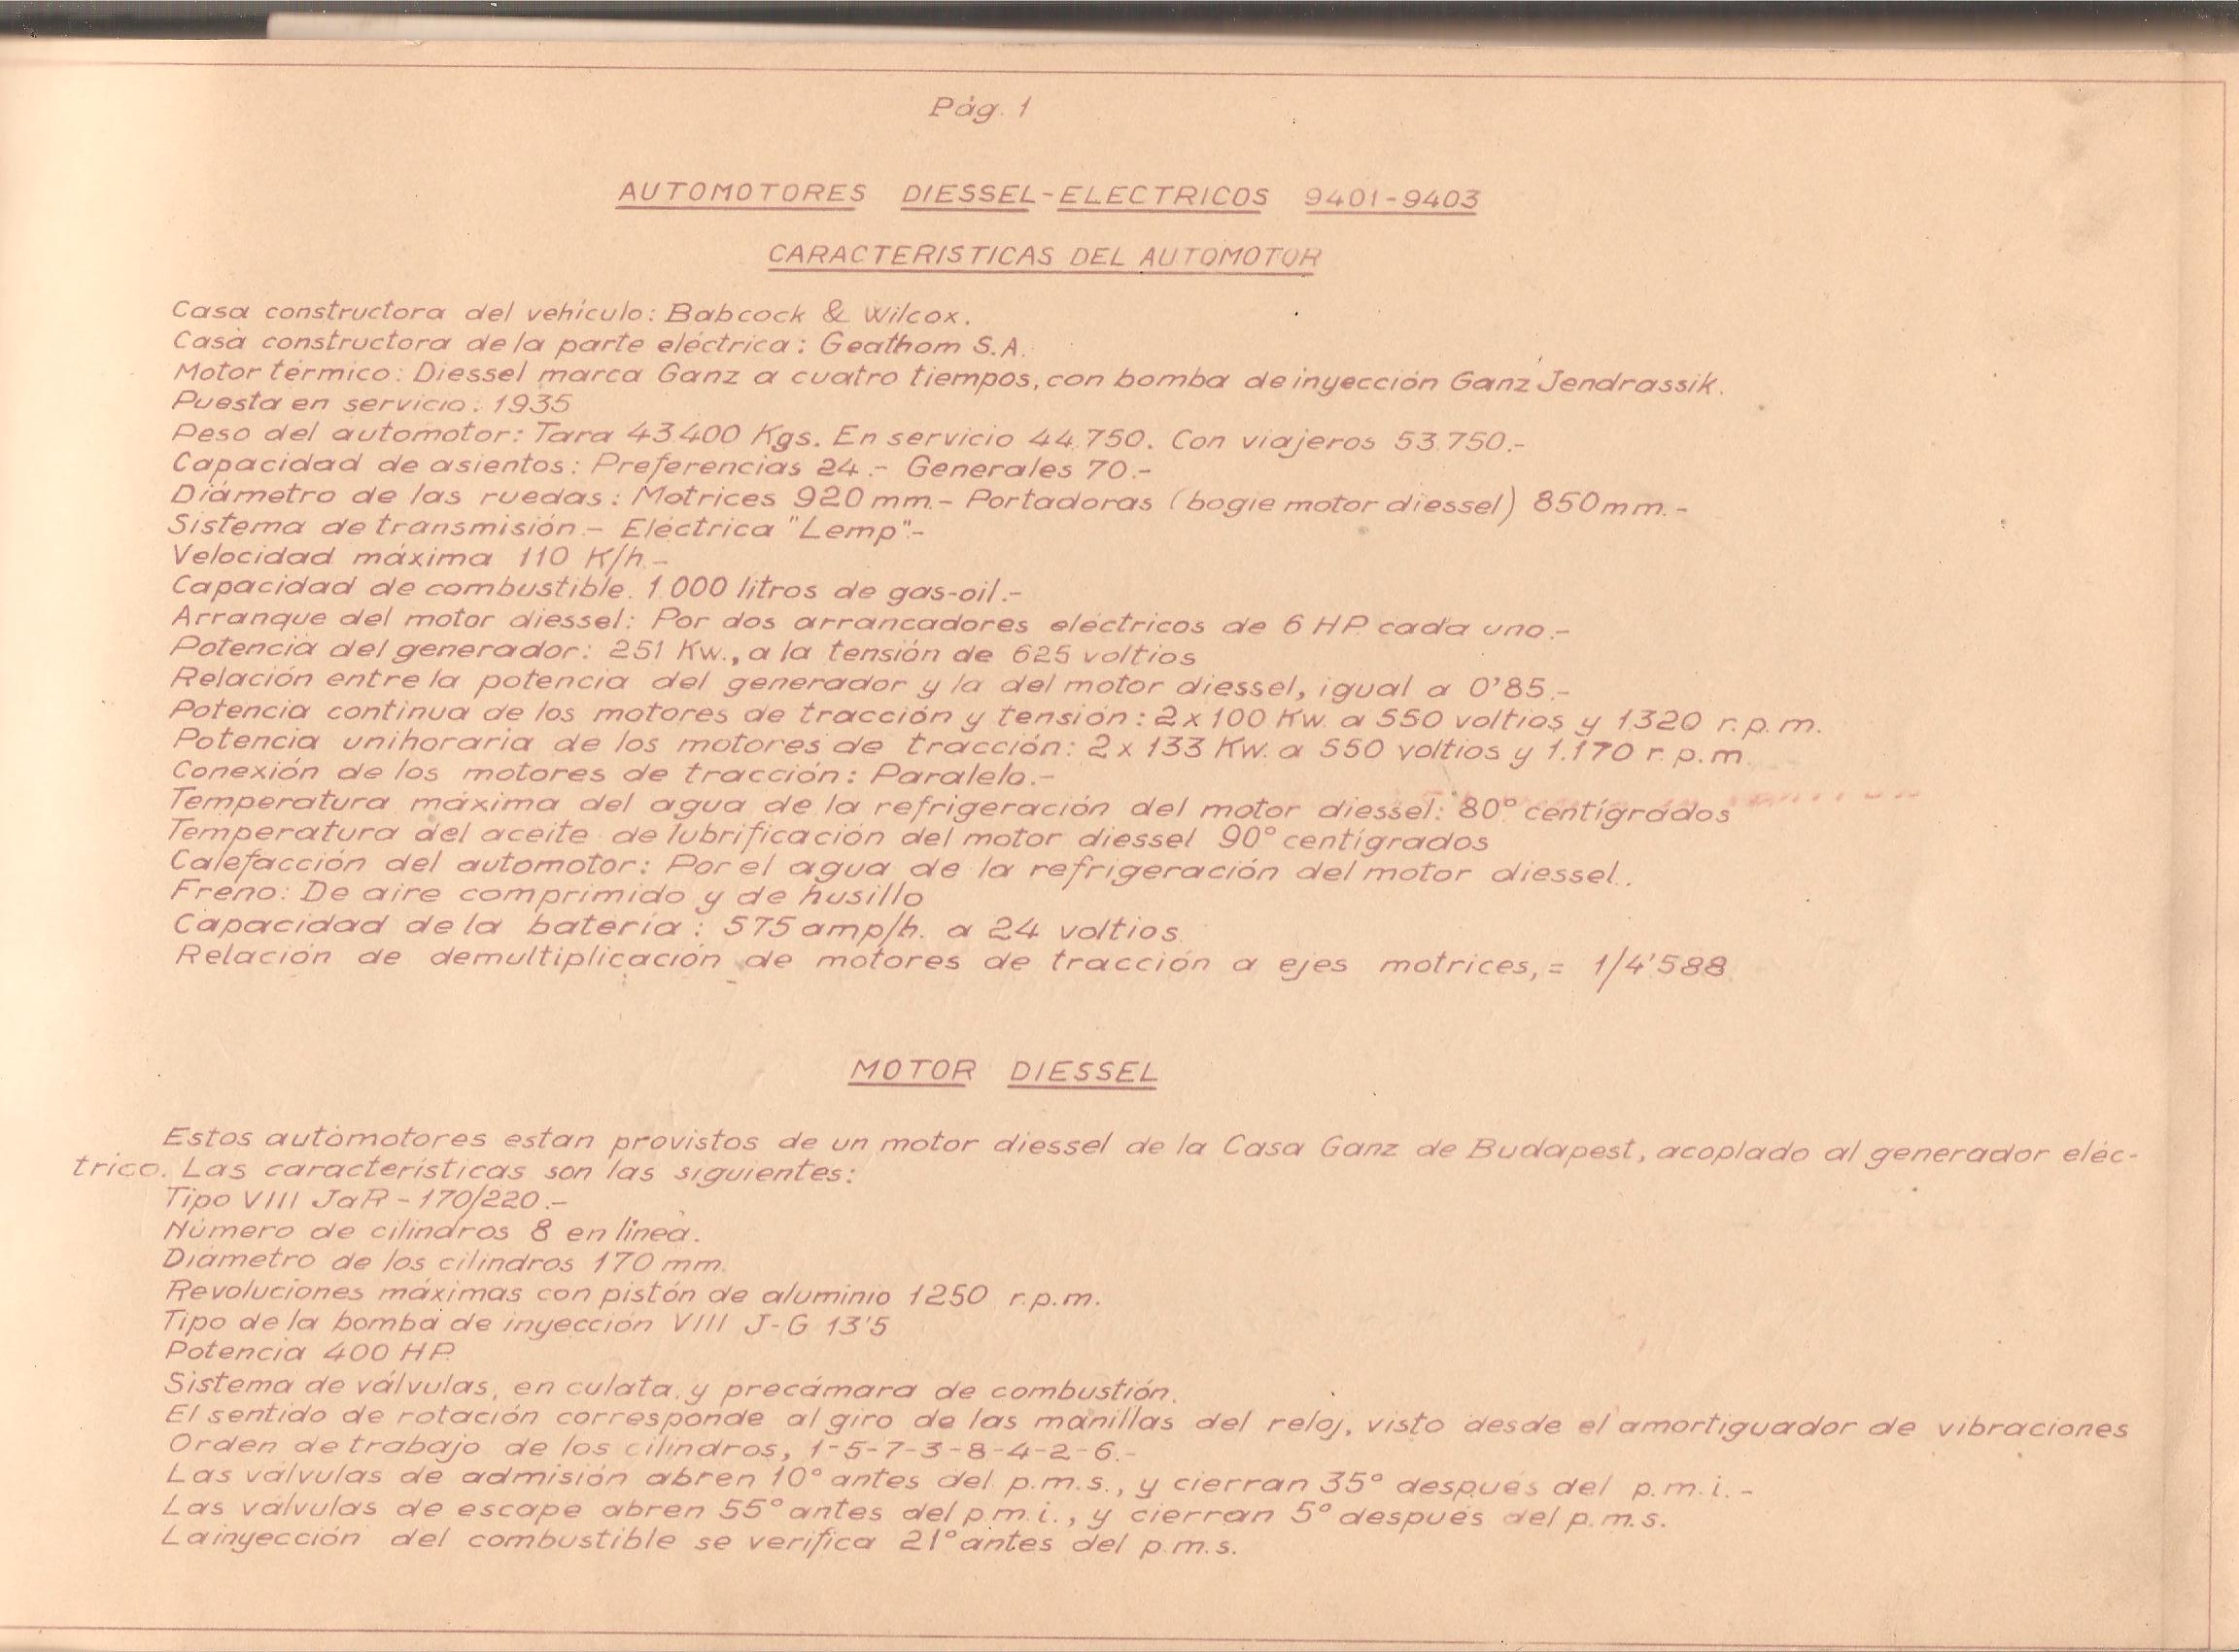 Pág. 1
AUTOMOTORES DIESSEL-ELECTRICOS 9401-9403
CARACTERISTICAS DEL AUTOMOTOR
Casa constructora del vehículo: Babcock & Wilcox.
Casa constructora de la parte eléctrica: Geathom S.A.
Motor térmico: Diessel marca Ganz a cuatro tiempos, con bomba de inyección Ganz Jendrassik.
Puesta en servicio: 1935
Peso del automotor: Tara 43.400 Kgs. En servicio 44.750. Con viajeros 53.750.-
Capacidad de asientos: Preferencias 24.- Generales 70.-
Diámetro de las ruedas: Motrices 920 mm.- Portadoras (bogie motor diessel) 850 mm.-
Sistema de transmisión.- Eléctrica "Lemp".-
Velocidad máxima 110 K/h.-
Capacidad de combustible. 1.000 litros de gas-oil.-
Arranque del motor diessel: Por dos arrancadores eléctricos de 6 HP. cada uno.-
Potencia del generador: 251 Kw., a la tensión de 625 voltios
Relación entre la potencia del generador y la del motor diessel, igual a 0'85.-
Potencia continua de los motores de tracción y tensión: 2 x 100 Kw. a 550 voltios y 1320 r.p.m.
Potencia unihoraria de los motores de tracción: 2 x 133 Kw. a 550 voltios y 1.170 r.p.m
Conexión de los motores de tracción: Paralelo.-
Temperatura máxima del agua de la refrigeración del motor diessel: 80° centígrados
Temperatura del aceite de lubrificación del motor diessel 90° centígrados
Calefacción del automotor: Por el agua de la refrigeración del motor diessel.
Freno: De aire comprimido y de husillo
Capacidad de la batería: 575 amp/h. a 24 voltios
Relación de demultiplicación de motores de tracción a ejes motrices, = 1/4'588
MOTOR DIESSEL
Estos automotores estan provistos de un motor diessel de la Casa Ganz de Budapest, acoplado al generador eléc-
trico. Las características son las siguientes:
Tipo VIII JaR - 170/220.-
Número de cilindros 8 en línea.
Diámetro de los cilindros 170 mm.
Revoluciones máximas con pistón de aluminio 1250 r.p.m.
Tipo de la bomba de inyección VIII J-G 13'5
Potencia 400 HP.
Sistema de válvulas, en culata y precámara de combustión.
El sentido de rotación corresponde al giro de las manillas del reloj, visto desde el amortiguador de vibraciones
Orden de trabajo de los cilindros, 1-5-7-3-8-4-2-6.-
Las válvulas de admisión abren 10° antes del p.m.s., y cierran 35° después del p.m.i.-
Las válvulas de escape abren 55° antes del p.m.i., y cierran 5° después del p.m.s.
La inyección del combustible se verifica 21° antes del p.m.s.